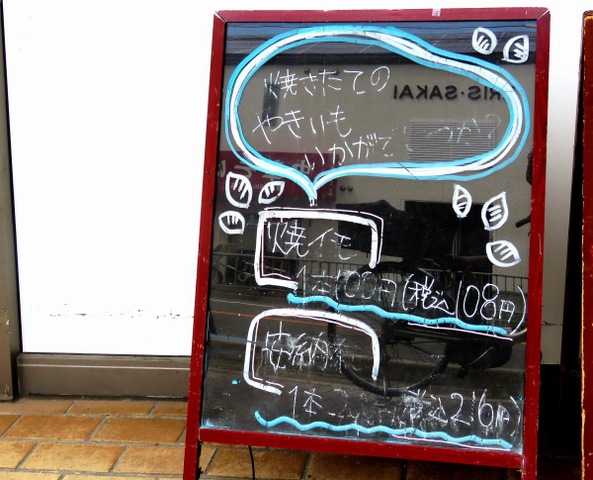 焼きたての
やきいも
いかがですか?
焼イモ
1本100円(税込108円)
安納
1本 200円(税込216円)
RIS・SAKAI